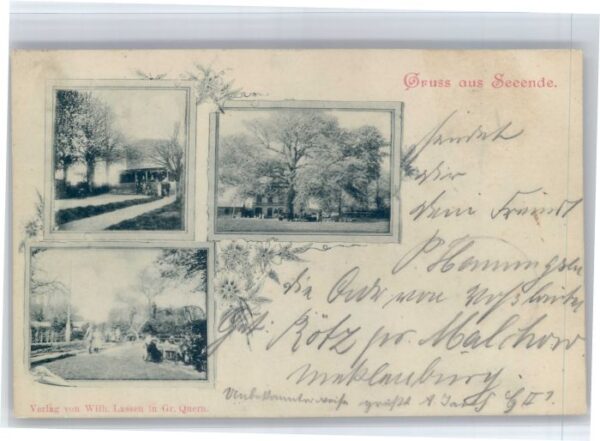 Gruss aus Seeende.
sendet
dir
dein Freund
P. Hemmingsen
die Orde von
Gut: Rötz pr. Malchow
Meklenburg.
Unbekannterweise grüßt
Verlag von Wilh. Lassen in Gr. Quern.